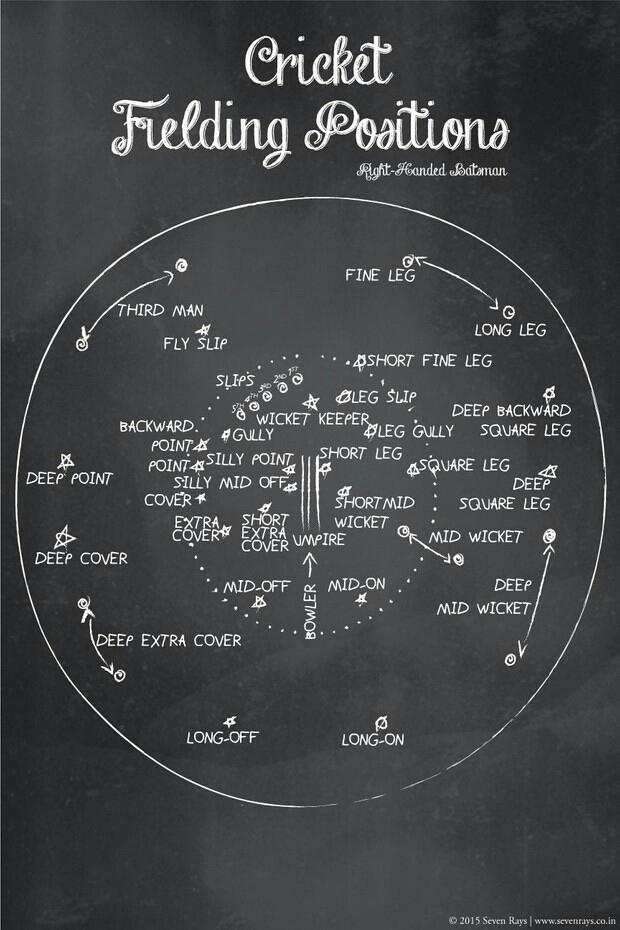 Cricket
Fielding Positions
Right-Handed Batsman
FINE LEG
THIRD MAN
LONG LEG
FLY SLIP
SHORT FINE LEG
SLIPS
5TH 4TH 3RD 2ND 1ST
LEG SLIP
DEEP BACKWARD
SQUARE LEG
WICKET KEEPER
BACKWARD
POINT
GULLY
LEG GULLY
SHORT LEG
POINT
SILLY POINT
SQUARE LEG
DEEP POINT
SILLY MID OFF
DEEP
SQUARE LEG
COVER
SHORT MID
WICKET
EXTRA
COVER
SHORT
EXTRA
COVER
UMPIRE
MID WICKET
DEEP COVER
MID-OFF
MID-ON
DEEP
MID WICKET
BOWLER
DEEP EXTRA COVER
LONG-OFF
LONG-ON
© 2015 Seven Rays | www.sevenrays.co.in